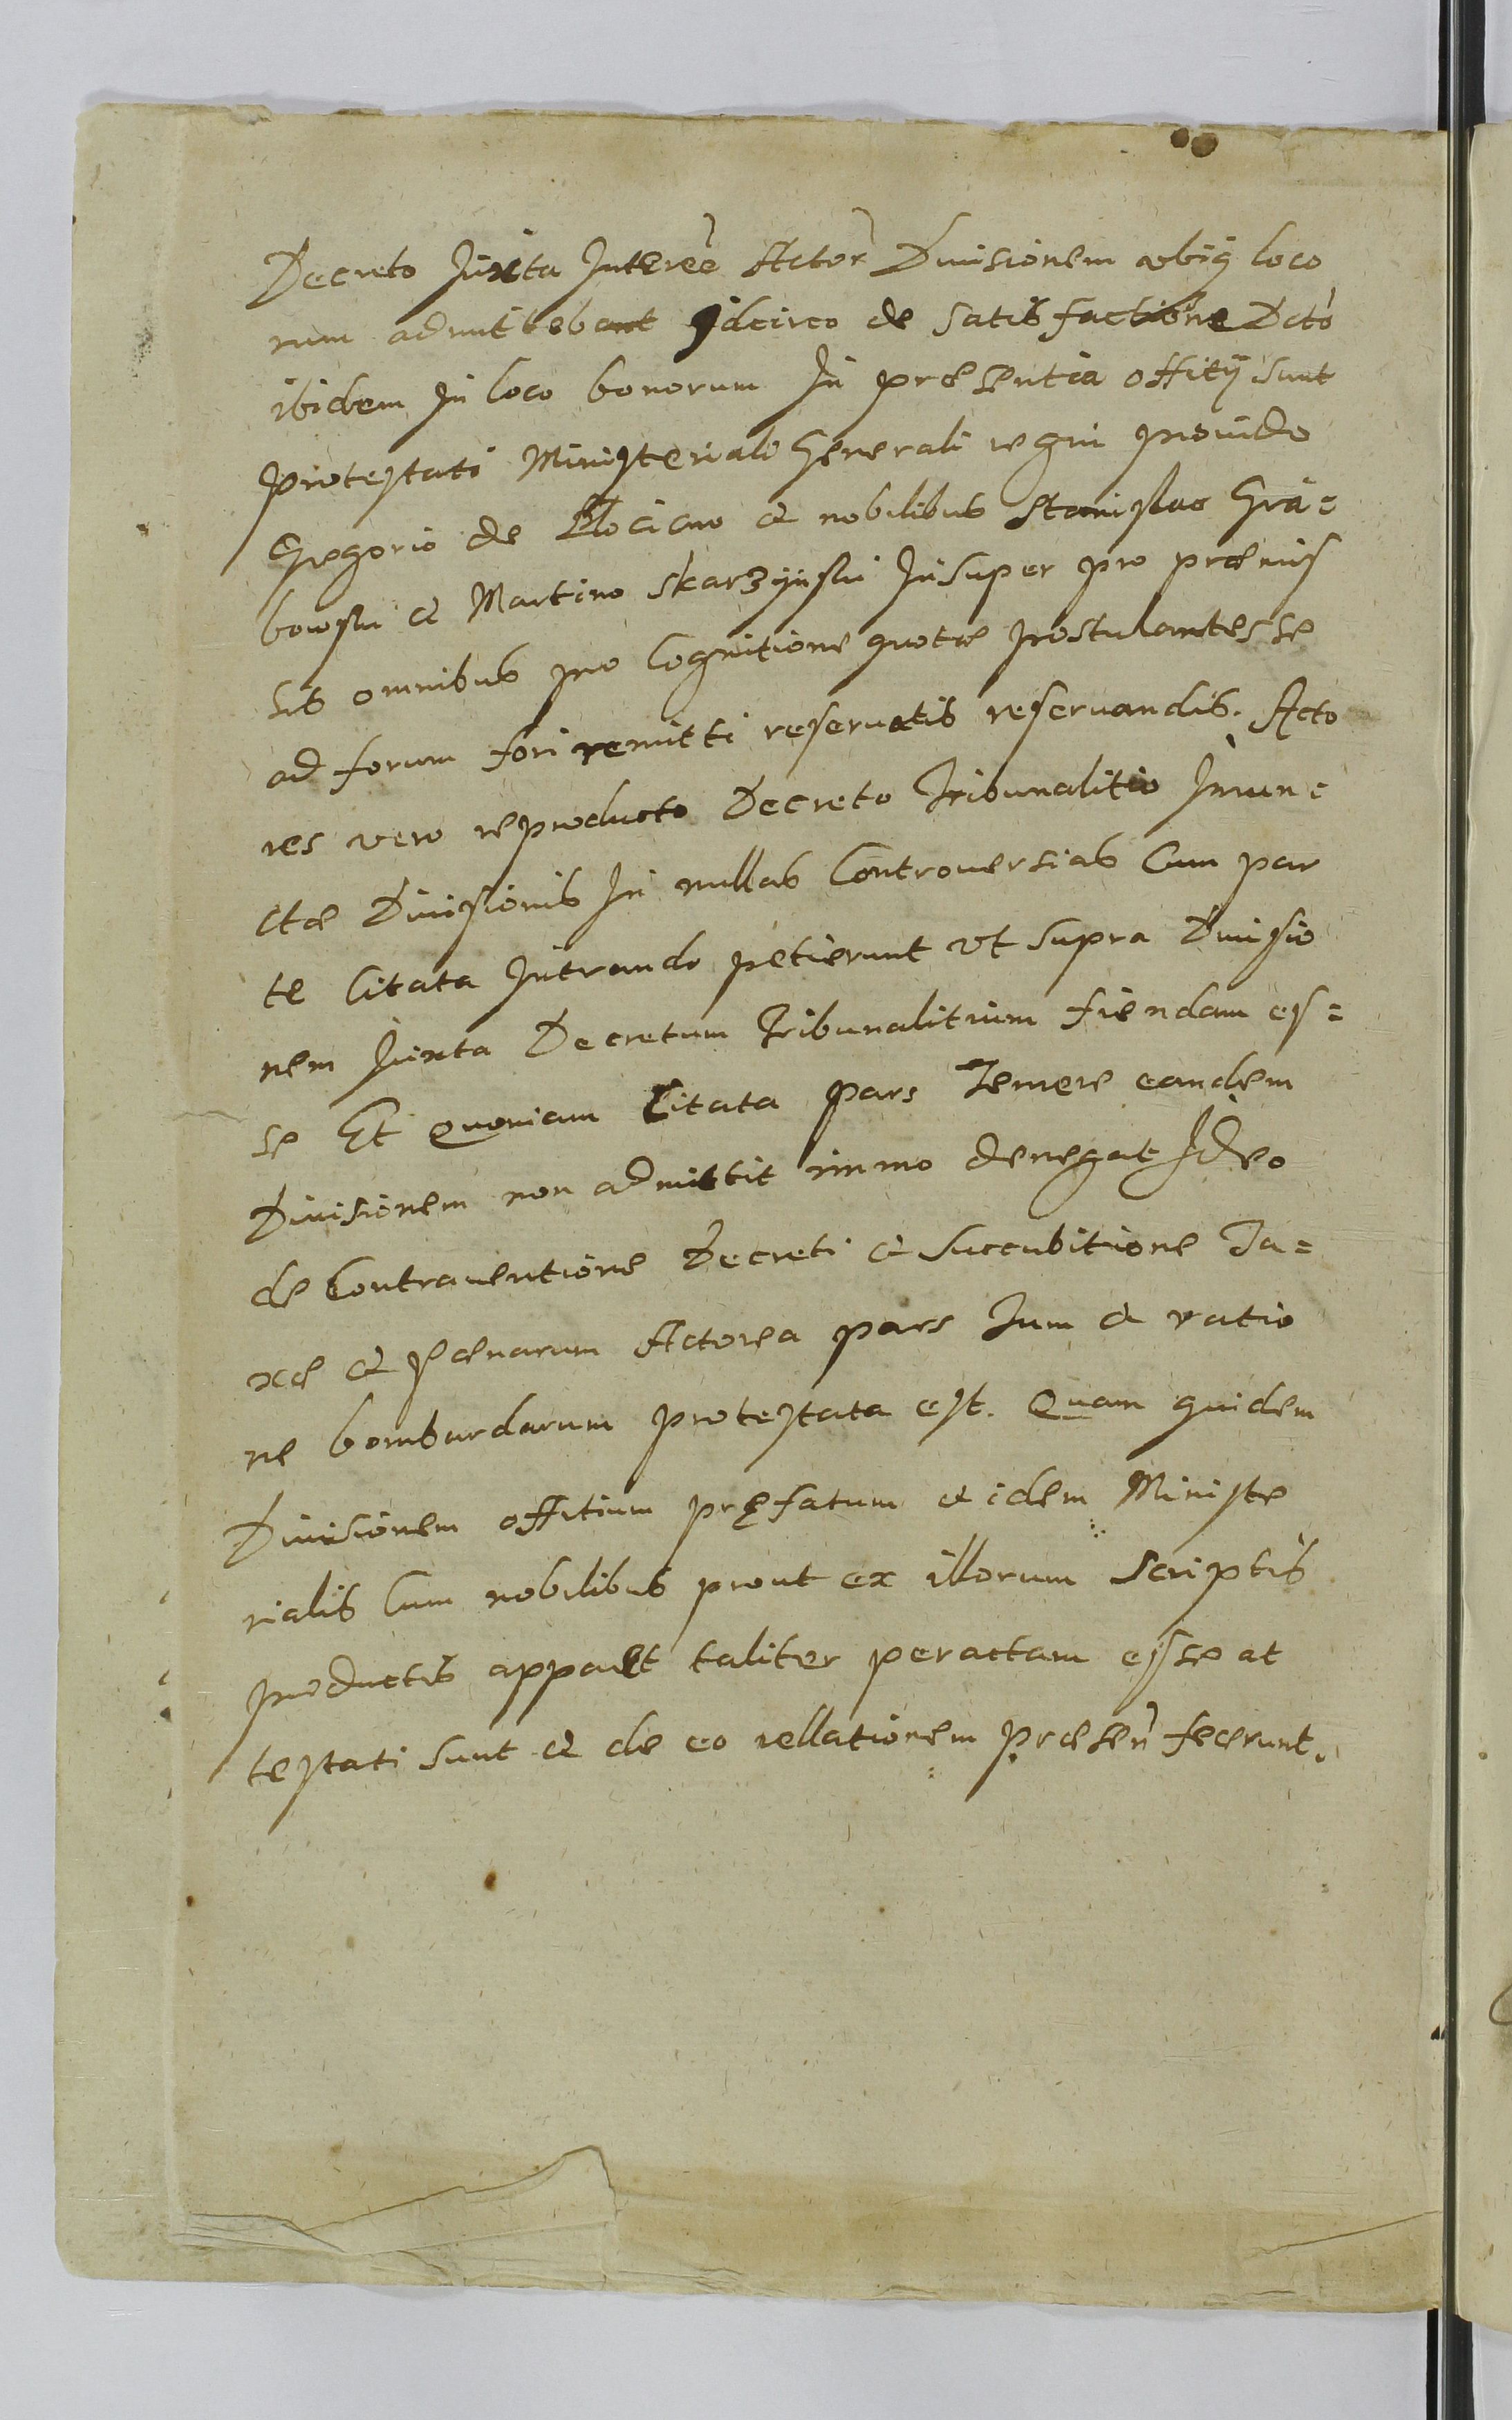 Decreto Juxta Interee Actor Diuisionem vbiq loco
rum admittebant Idcirco de satisfactione Dcto
ibidem In loco bonorum In præsentia offitÿ sunt
protestati Ministeriali Generali regni prouido
Gregorio de & nobilibus Stanislao Gra=
bowski & Martino Skarzÿnski Insuper pro præmis
sis omnibus pro Cognitione quotæ postulantes se
ad forum fori remitti reseruatis reseruandis. Acto
res vero reproducto Decreto Tribunalitio Iniun=
ctæ Diuisionis In nullas Controuersias Cum par
te Citata Intrando petierunt vt supra Diuisio
nem Juxta Decretum Tribunalitium fiendam es=
se Et Quoniam Citata pars Temere eandem
Diuisionem non admittit immo denegat Ideo
de Contrauentione Decreti & Succubitione Ta=
xæ & Pænarum Actorea pars Tum & ratio
ne bombardarum protestata est. Quam quidem
Diuisionem offitium pręfatum & idem Ministe
rialis Cum nobilibus prout ex illorum Scriptis
productis appaet taliter peractam esse at
testati sunt & de eo rellationem præsen fecerunt.